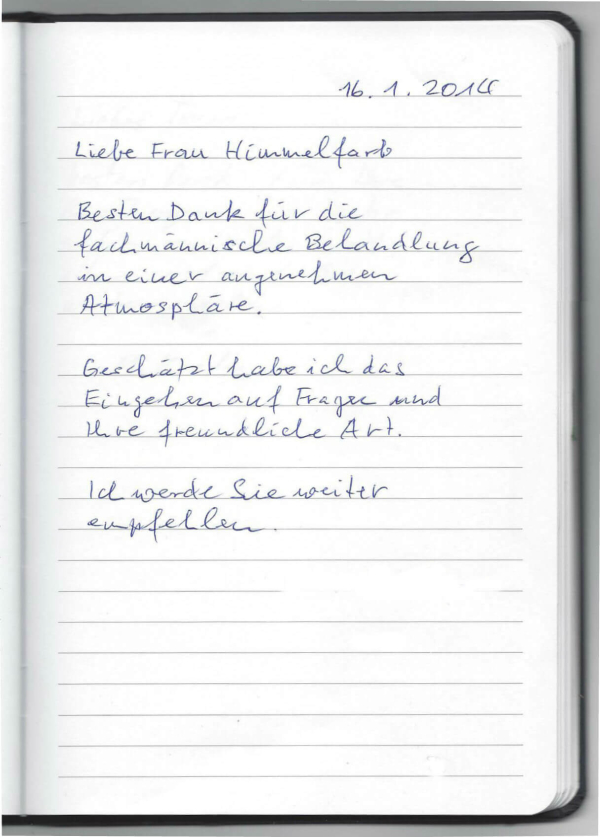 16. 1. 2014
Liebe Frau Himmelfarb
Besten Dank für die
fachmännische Behandlung
in einer angenehmen
Atmosphäre.
Geschätzt habe ich das
Eingehen auf Fragen und
Ihre freundliche Art.
Ich werde Sie weiter
empfehlen.